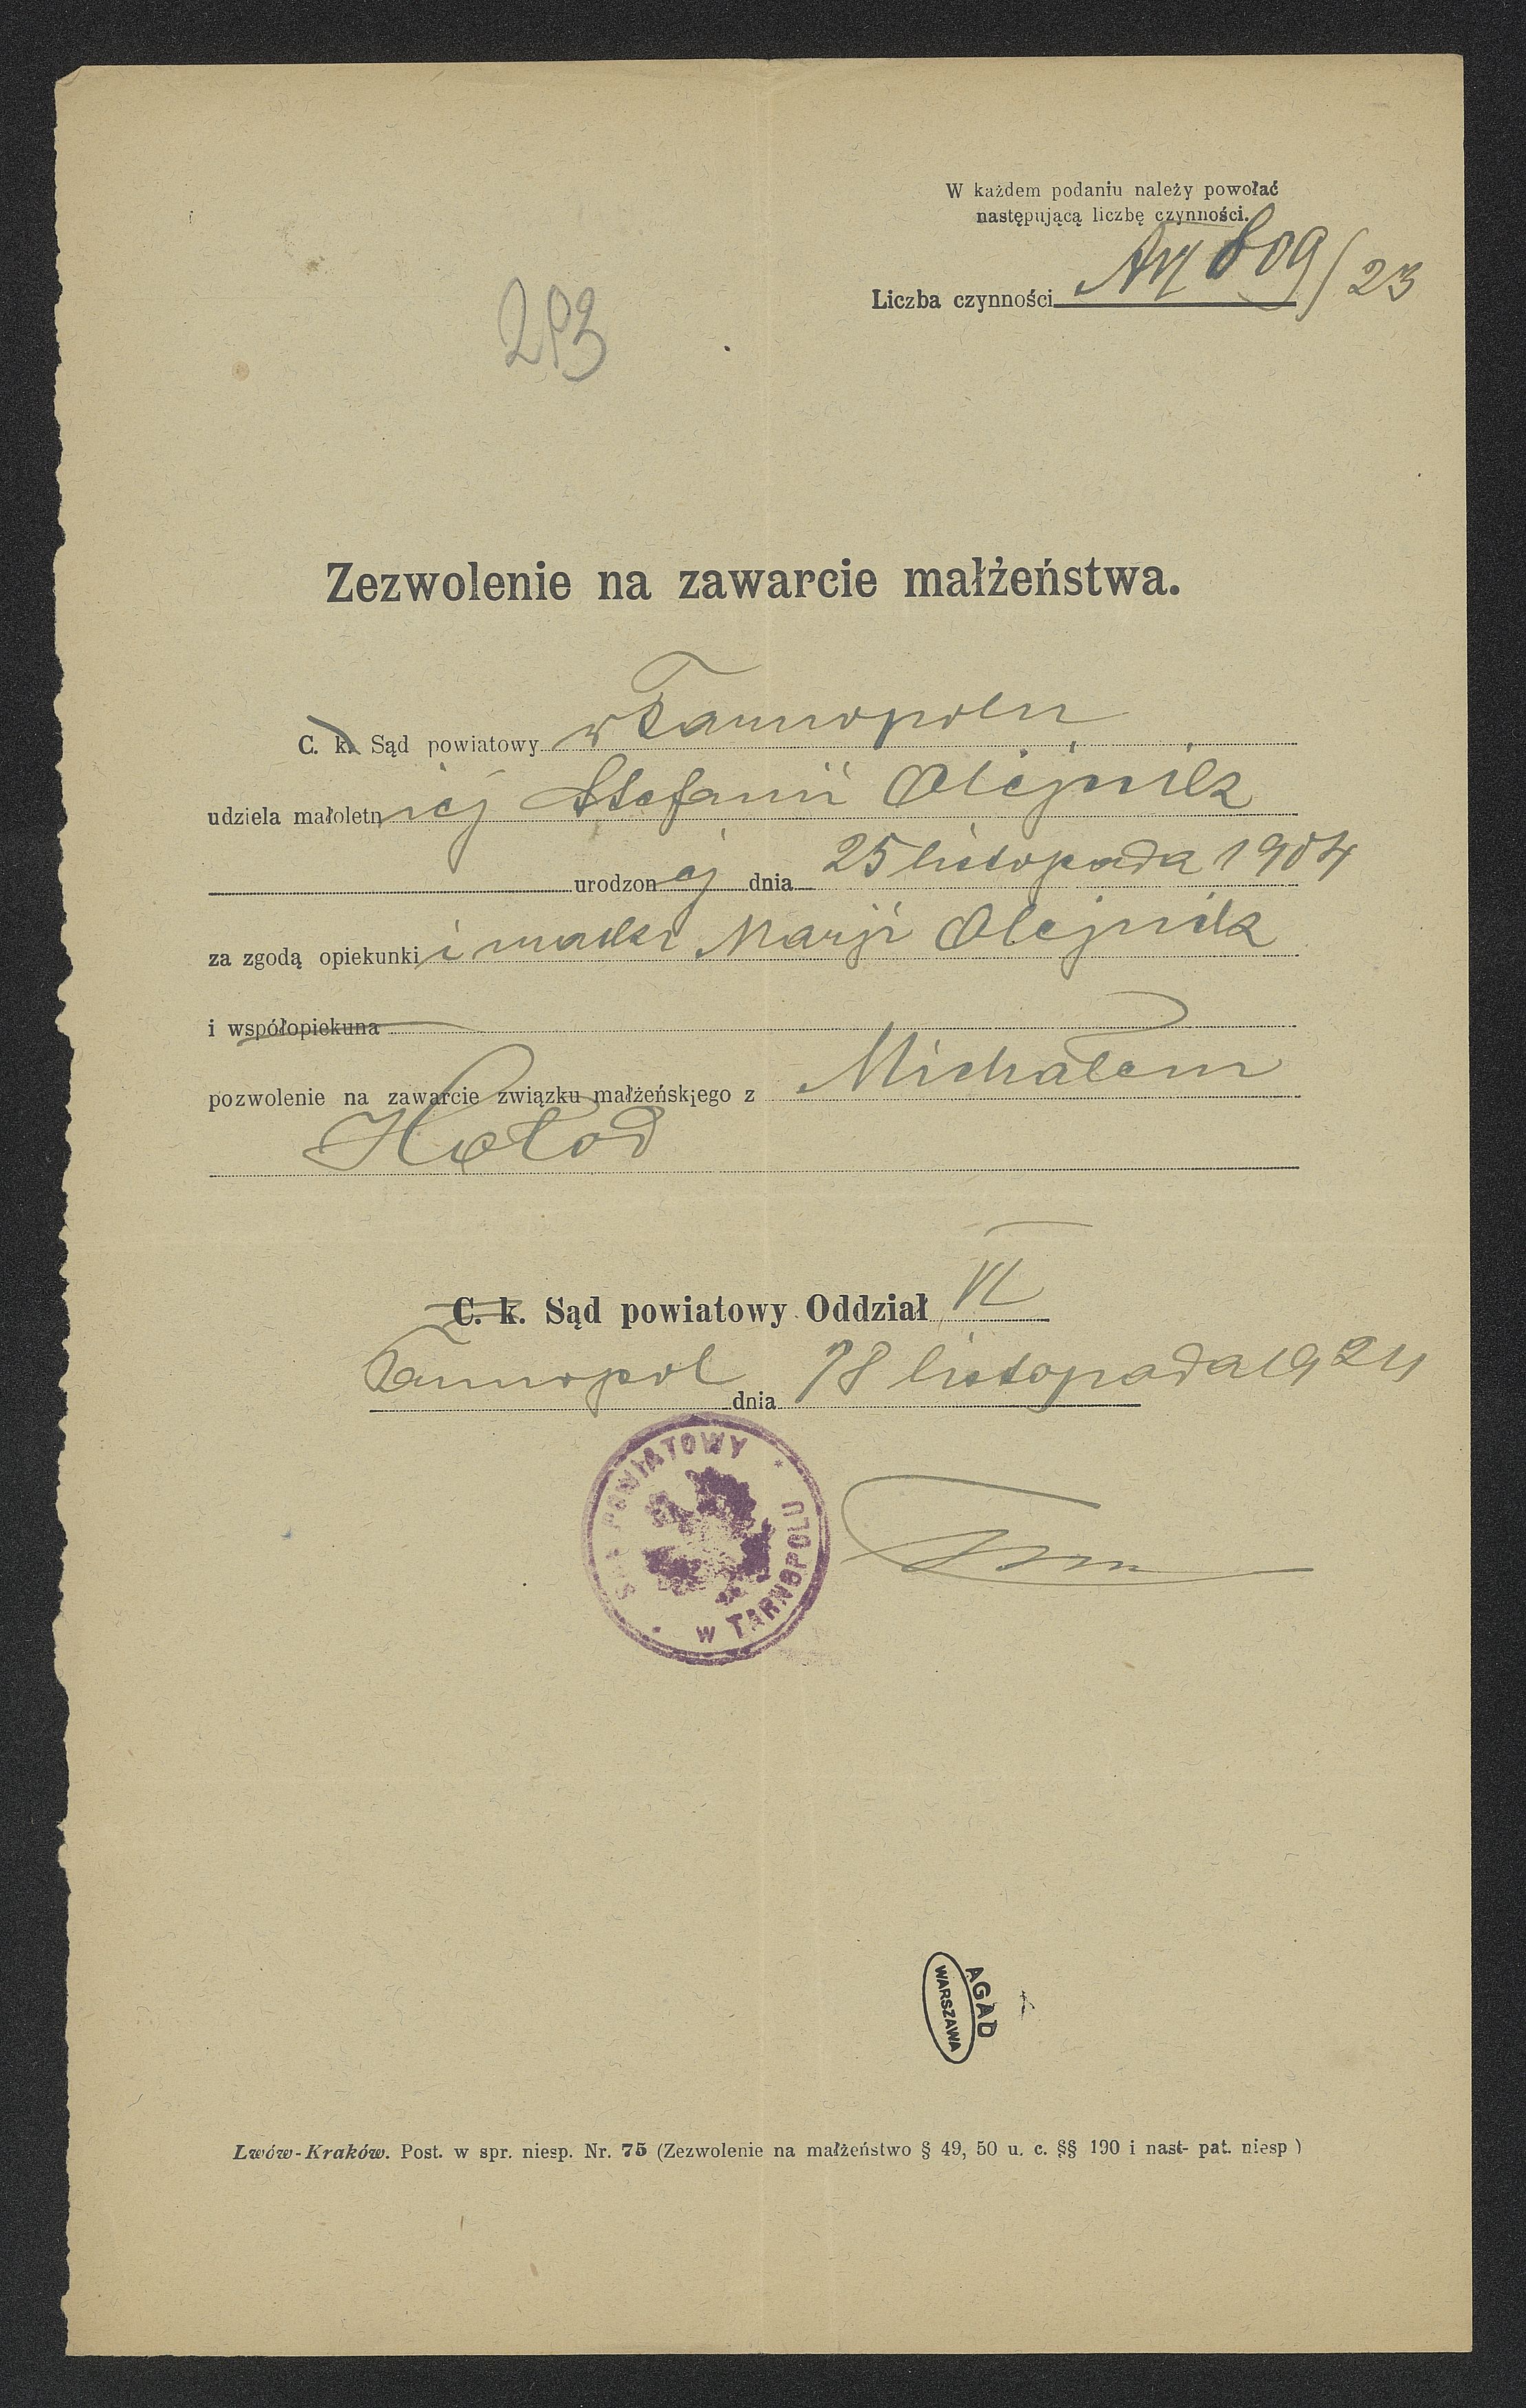 W każdem podaniu należy powołać
następującą liczbę czynności.
Liczba czynności 809/23
293
Zezwolenie na zawarcie małżeństwa.
C. k. Sąd powiatowy w Tarnopolu
udziela małoletniej Stefanii Olejnik
urodzonej dnia 25 listopada 1904
za zgodą opiekunki i matki Marji Olejnik
i współopiekuna
pozwolenie na zawarcie związku małżeńskiego z Michałem
Hołod
C. k. Sąd powiatowy Oddział VI
Tarnopol dnia 18 listopada 1924
SĄD POWIATOWY
w TARNOPOLU
AGAD
WARSZAWA
Lwów-Kraków. Post. w spr. niesp. Nr. 75 (Zezwolenie na małżeństwo § 49, 50 u. c. §§ 190 i nast- pat. niesp )